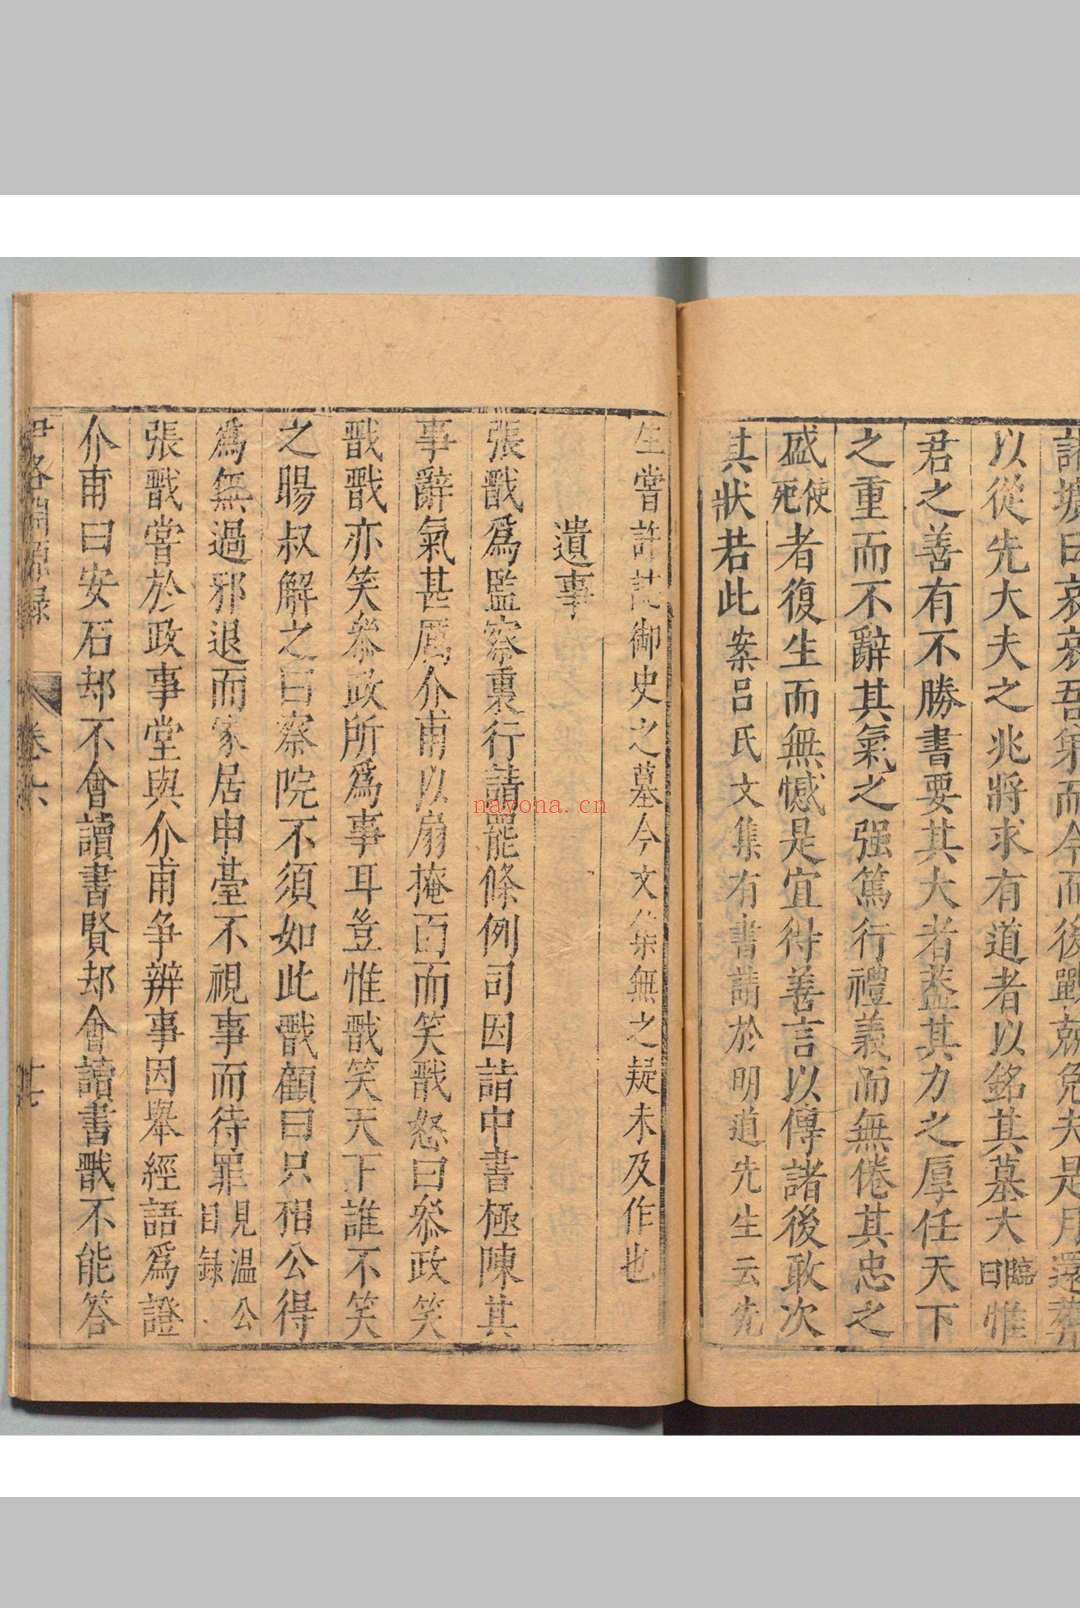 諸壙曰哀哀吾弟而今而後戰兢免夫是月還葬
以從先大夫之兆將求有道者以銘其墓大臨曰惟
君之善有不勝書要其大者蓋其力之厚任天下
之重而不辭其氣之强篤行禮義而無倦其忠之
盛使死者復生而無憾是宜得善言以傳諸後敢次
其狀若此案呂氏文集有書請於明道先生云先
生嘗許誌御史之墓今文集無之疑未及作也
遺事
張戬爲監察裏行請罷條例司因詣中書極陳其
事辭氣甚厲介甫以扇掩面而笑戬怒曰叅政笑
戬戬亦笑叅政所爲事耳豈惟戬笑天下誰不笑
之暘叔解之曰察院不須如此戬顧曰只相公得
爲無過邪退而家居申臺不視事而待罪見温公日録
張戬嘗於政事堂與介甫争辨事因舉經語爲證
介甫曰安石却不會讀書賢却會讀書戬不能答
伊洛淵源録 卷六 廿七
nayona.cn